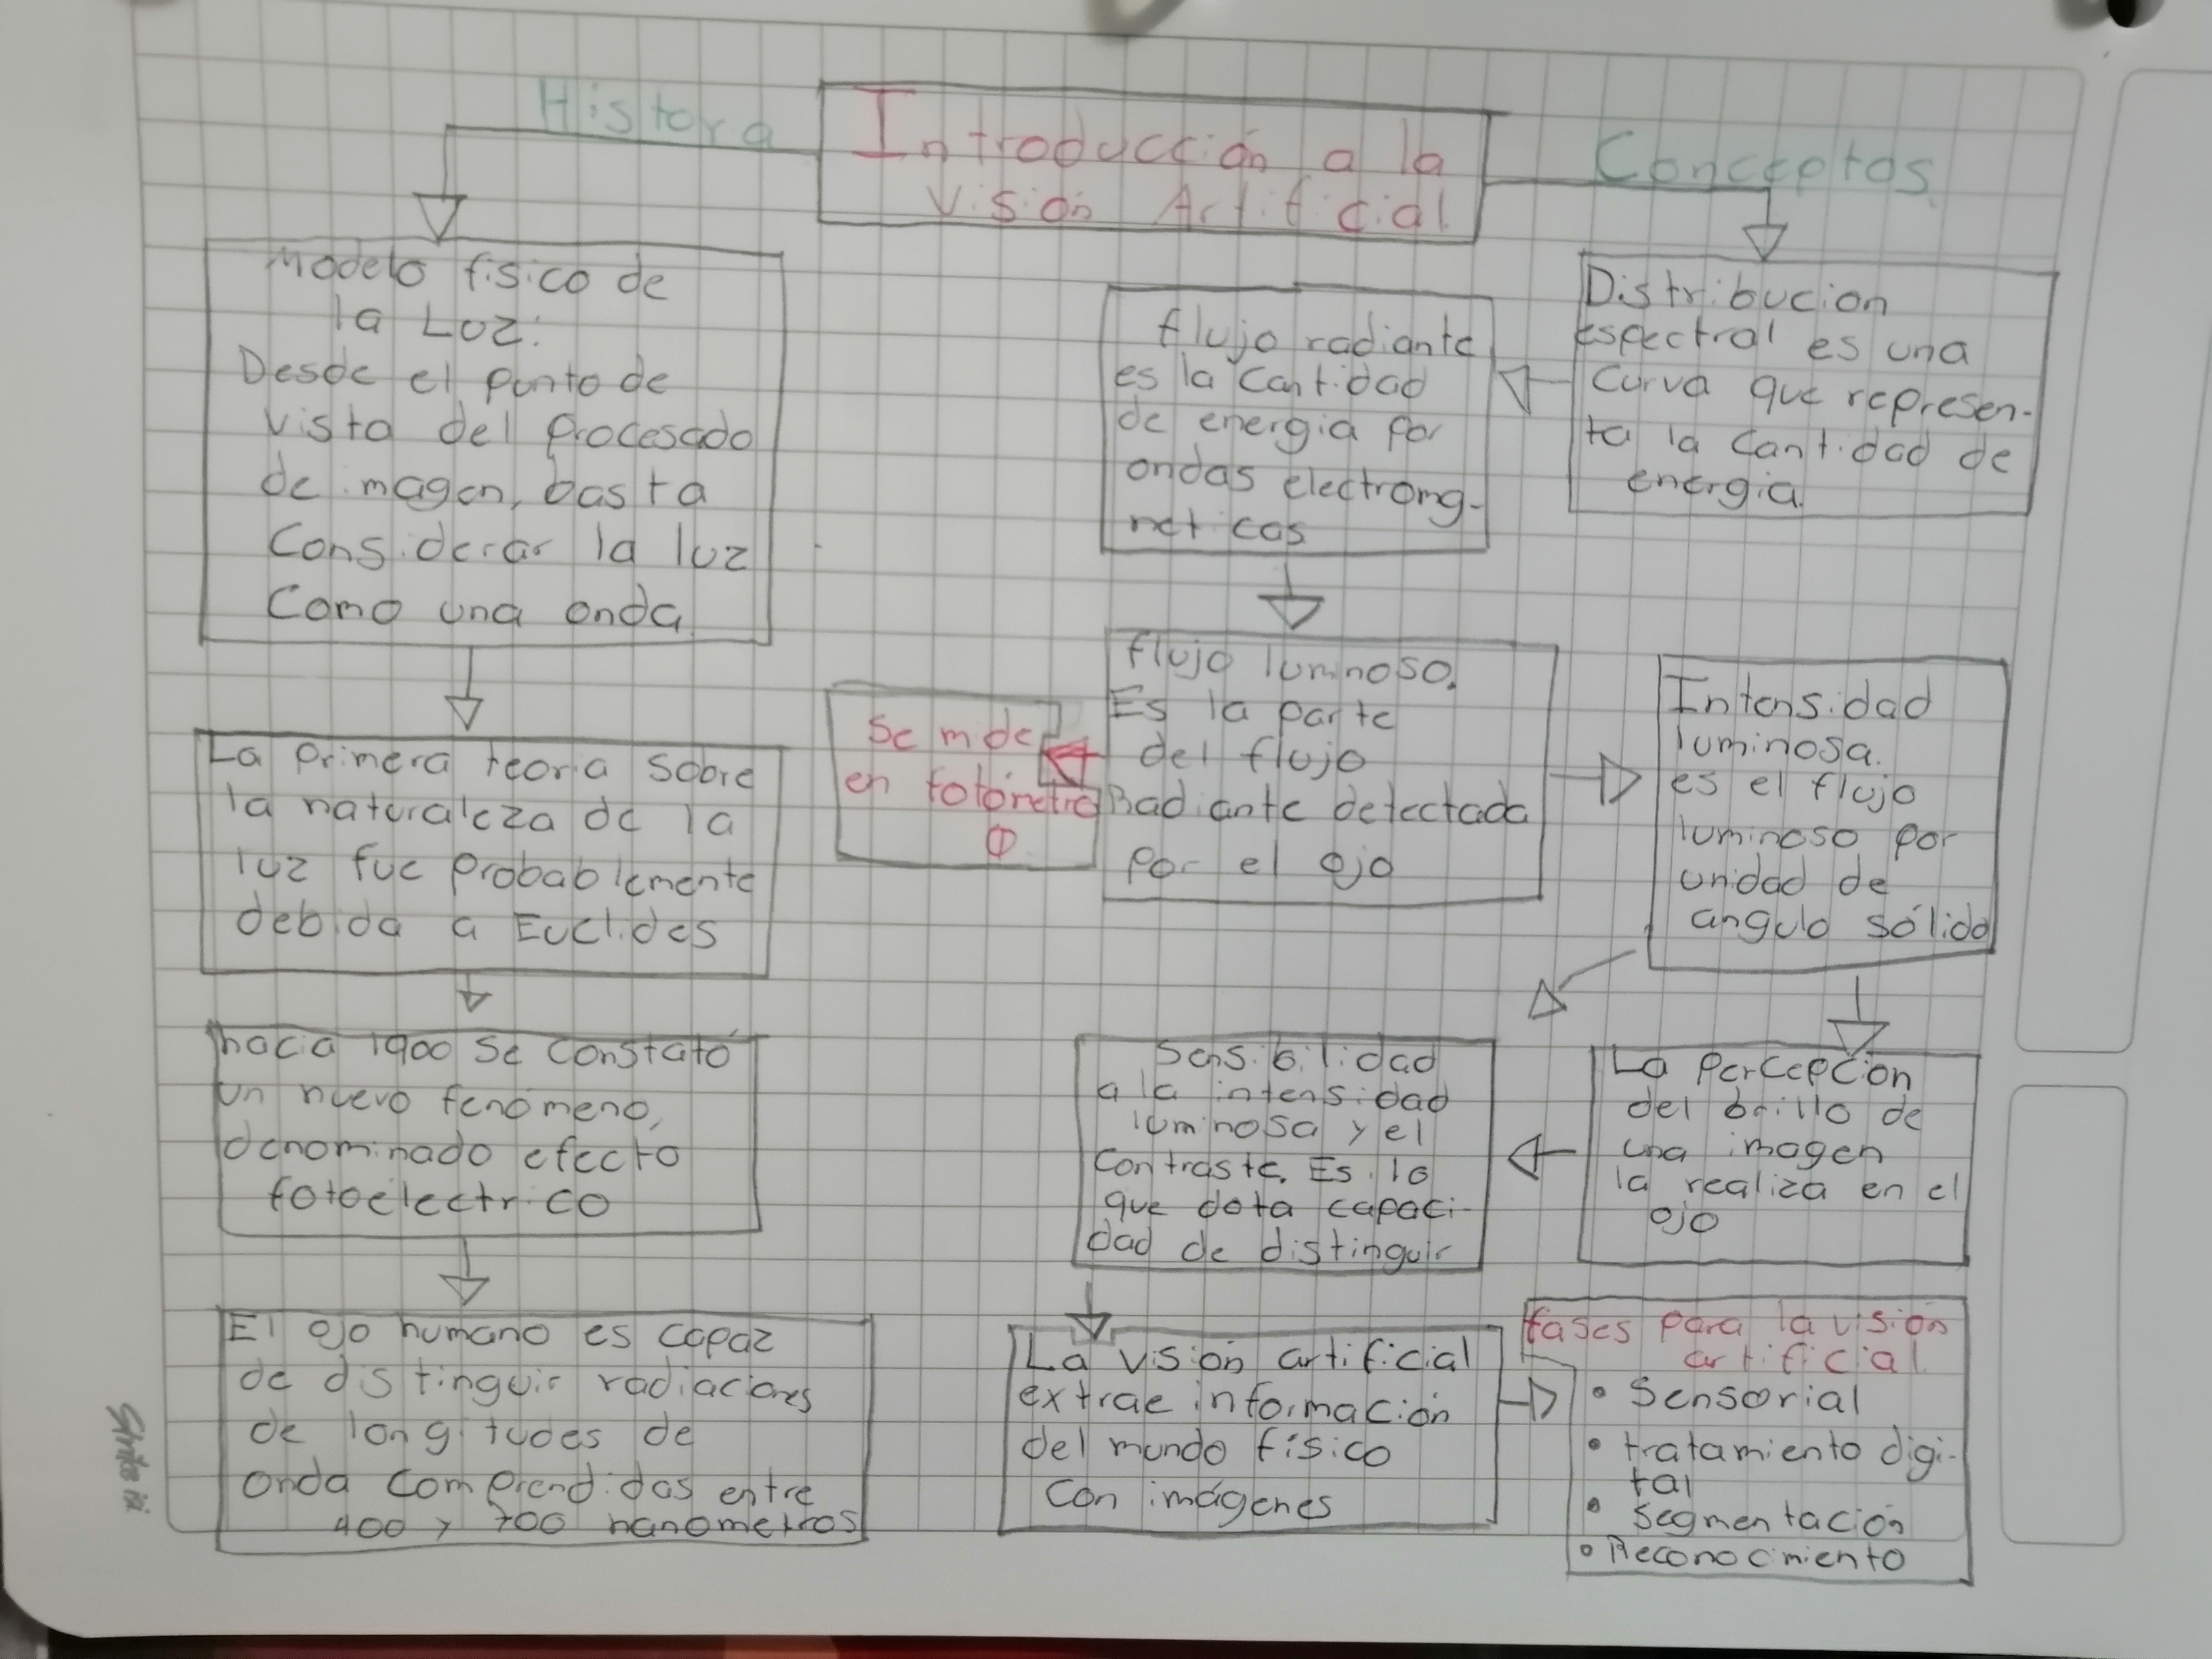 Historia
Introducción a la
Visión Artificial
Conceptos
Modelo fisico de
la Luz:
Desde el punto de
vista del procesado
de imagen, basta
Considerar la luz
Como una onda
La primera teoria sobre
la naturaleza de la
luz fue probablemente
debida a Euclides
hacia 1900 se constató
un nuevo fenómeno,
denominado efecto
fotoelectrico
El ojo humano es capaz
de distinguir radiaciones
de longitudes de
onda comprendidas entre
400 y 700 nanometros
Distribucion
espectral es una
Curva que represen-
ta la cantidad de
energia.
flujo radiante
es la cantidad
de energia por
ondas electromg-
neticas
flujo luminoso.
Es la parte
del flujo
Radiante detectada
por el ojo
Se mide
en fotómetria
Φ
Intensidad
luminosa.
es el flujo
luminoso por
unidad de
angulo sólido
La Percepcion
del brillo de
una imagen
la realiza en el
ojo
Sensibilidad
a la intensidad
luminosa y el
contraste. Es lo
que dota capaci-
dad de distinguir
La visión artificial
extrae información
del mundo físico
Con imágenes
fases para la visión
artificial
• Sensorial
• tratamiento digi-
tal
• Segmentación
• Reconocimiento